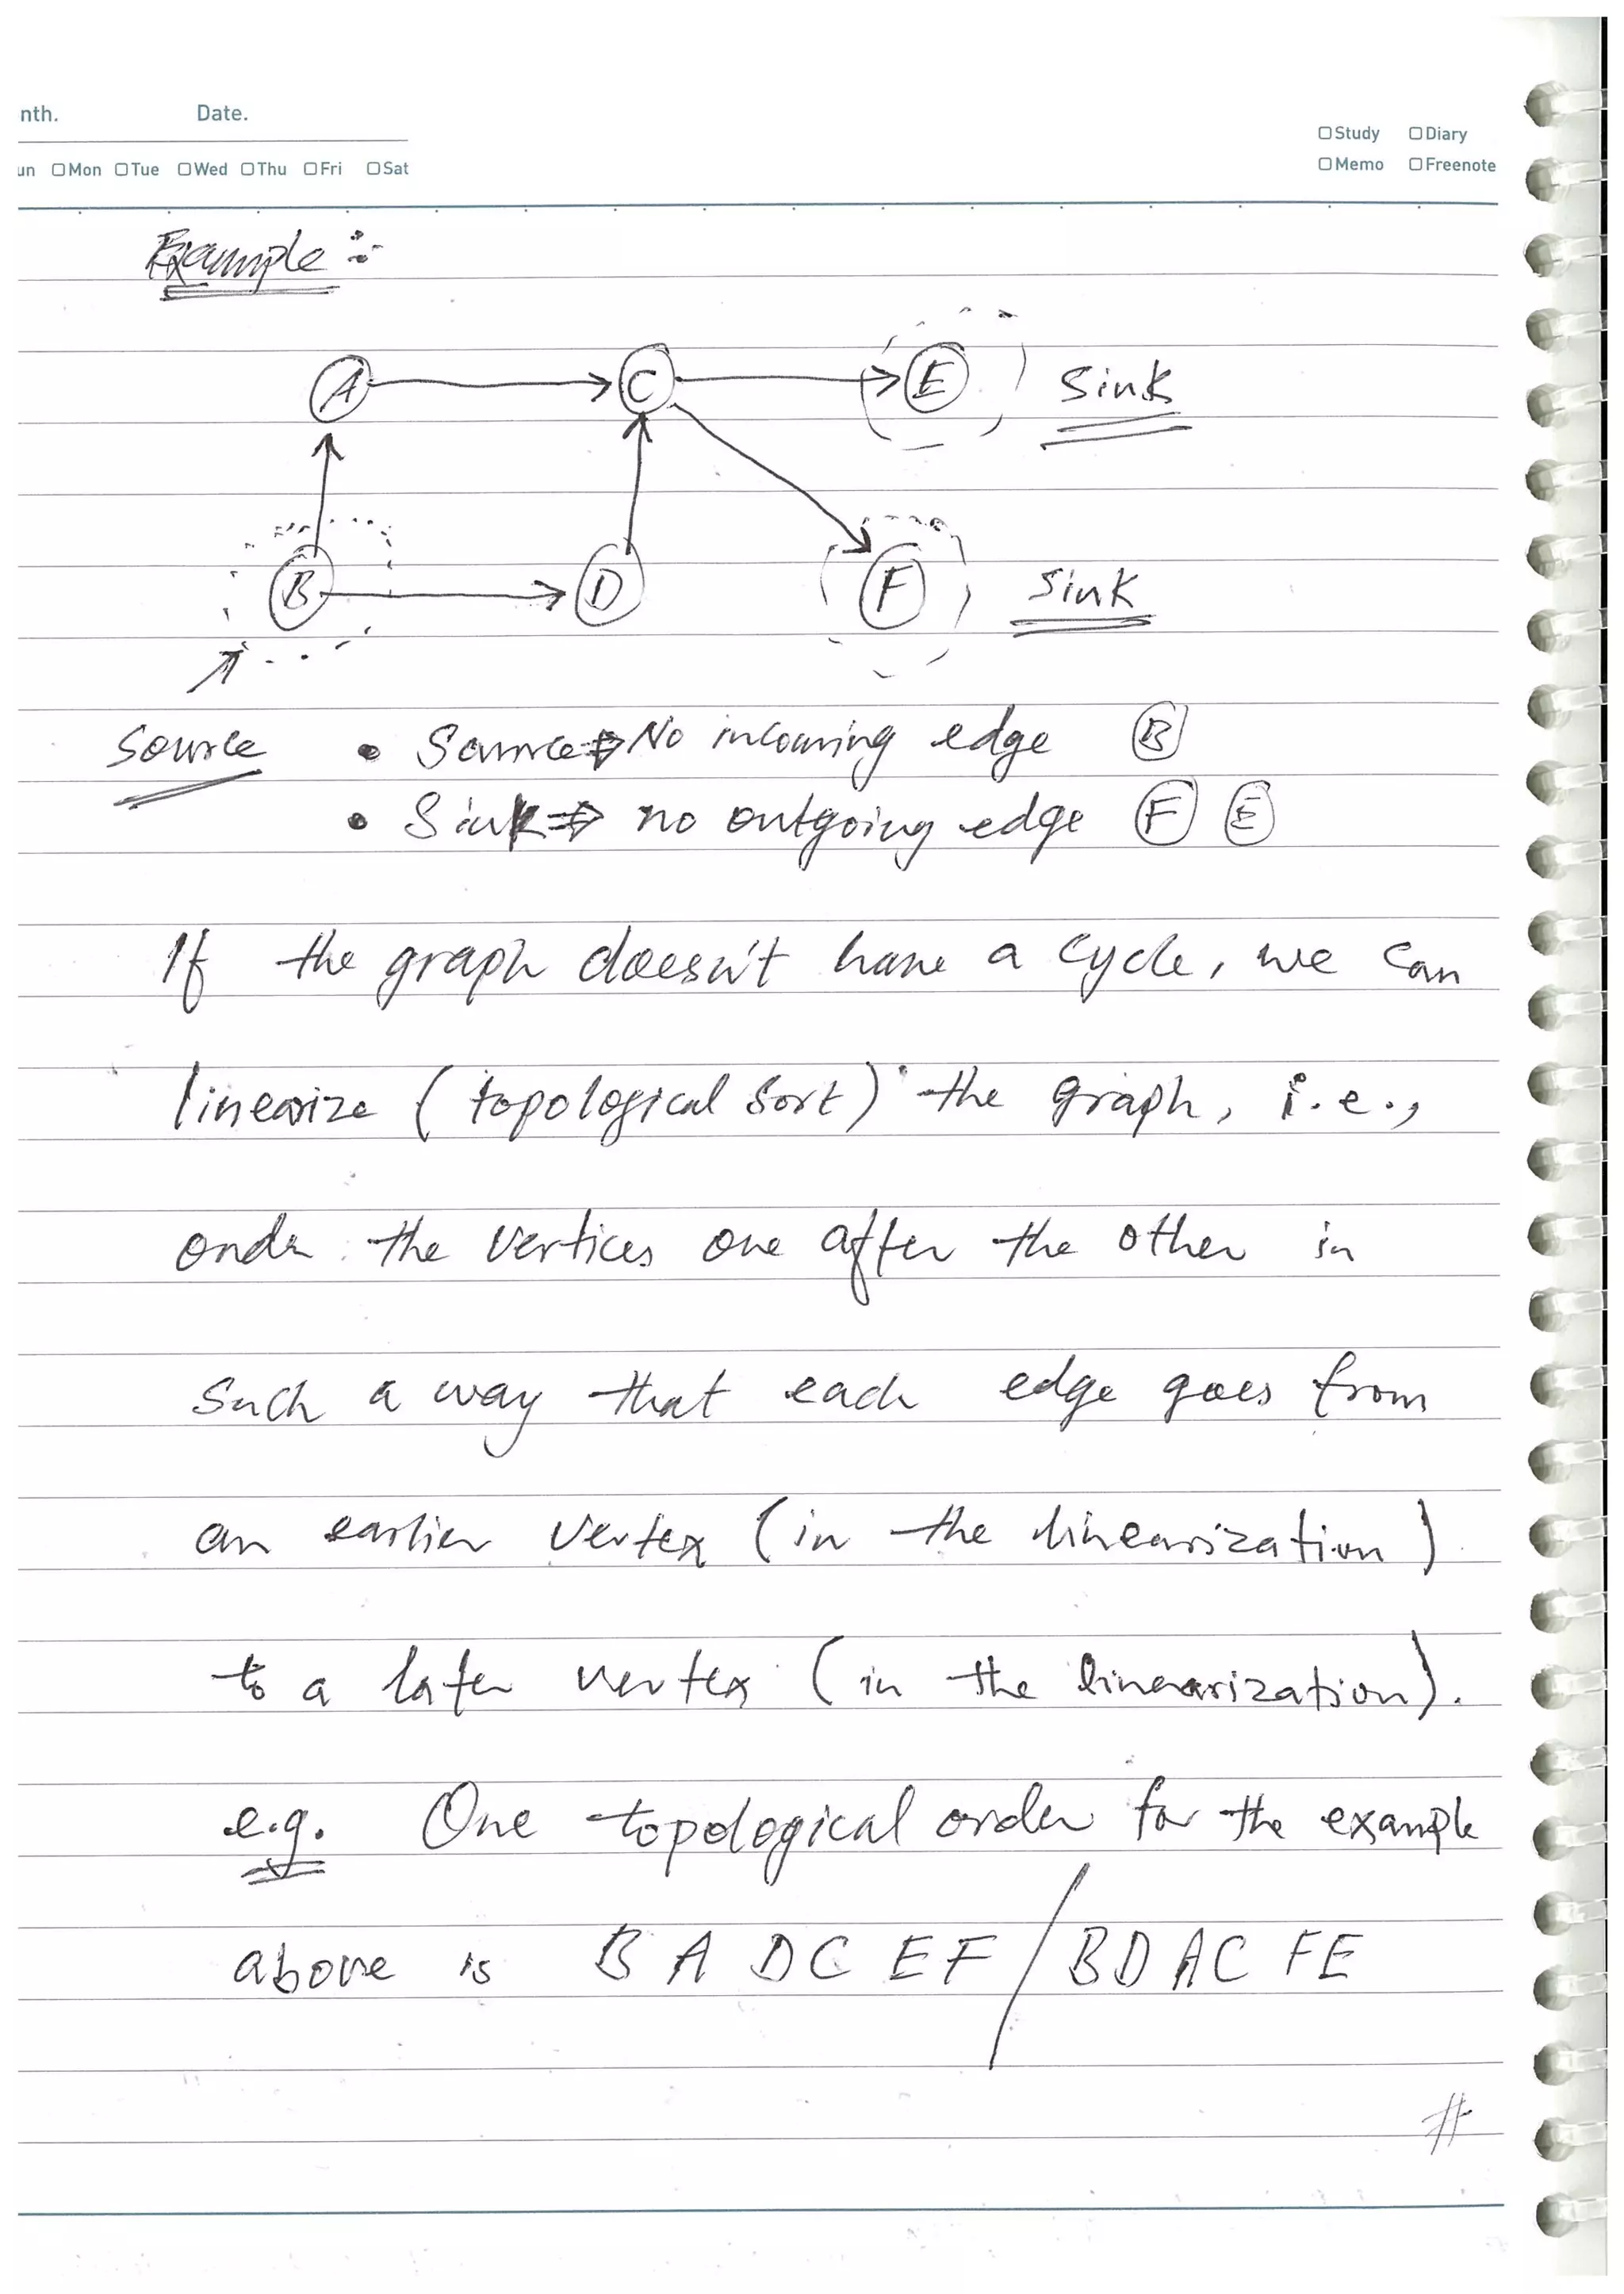 nth. Date.
un Mon Tue Wed Thu Fri Sat
Study Diary
Memo Freenote
Example :-
A C E Sink
B D F Sink
Source
• Source ⇒ No incoming edge B
• Sink ⇒ no outgoing edge F E
If the graph doesn't have a cycle, we can
linearize (topological sort) the graph, i.e.,
order the vertices one after the other in
Such a way that each edge goes from
an earlier vertex (in the linearization)
to a later vertex (in the linearization).
e.g. One topological order for the example
above is B A D C E F / B D A C F E
#